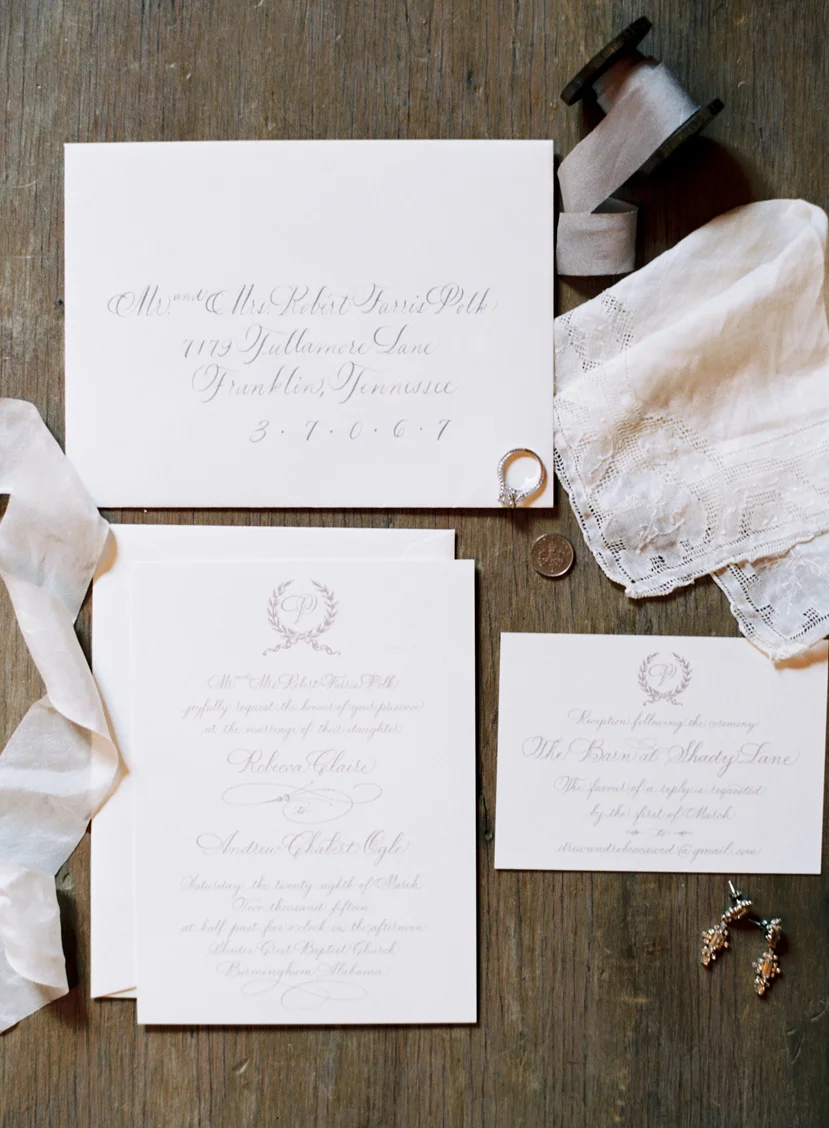 Mr. and Mrs. Robert Farris Polk
7179 Tullamore Lane
Franklin, Tennessee
3 · 7 · 0 · 6 · 7
P
Mr. and Mrs. Robert Farris Polk
joyfully request the honour of your presence
at the marriage of their daughter
Rebecca Claire
to
Andrew Chabert Ogle
Saturday, the twenty-eighth of March
Two thousand fifteen
at half past five o'clock in the afternoon
Shades Crest Baptist Church
Birmingham, Alabama
P
Reception following the ceremony
The Barn at Shady Lane
The favour of a reply is requested
by the first of March
to
drewandrebeccawed@gmail.com